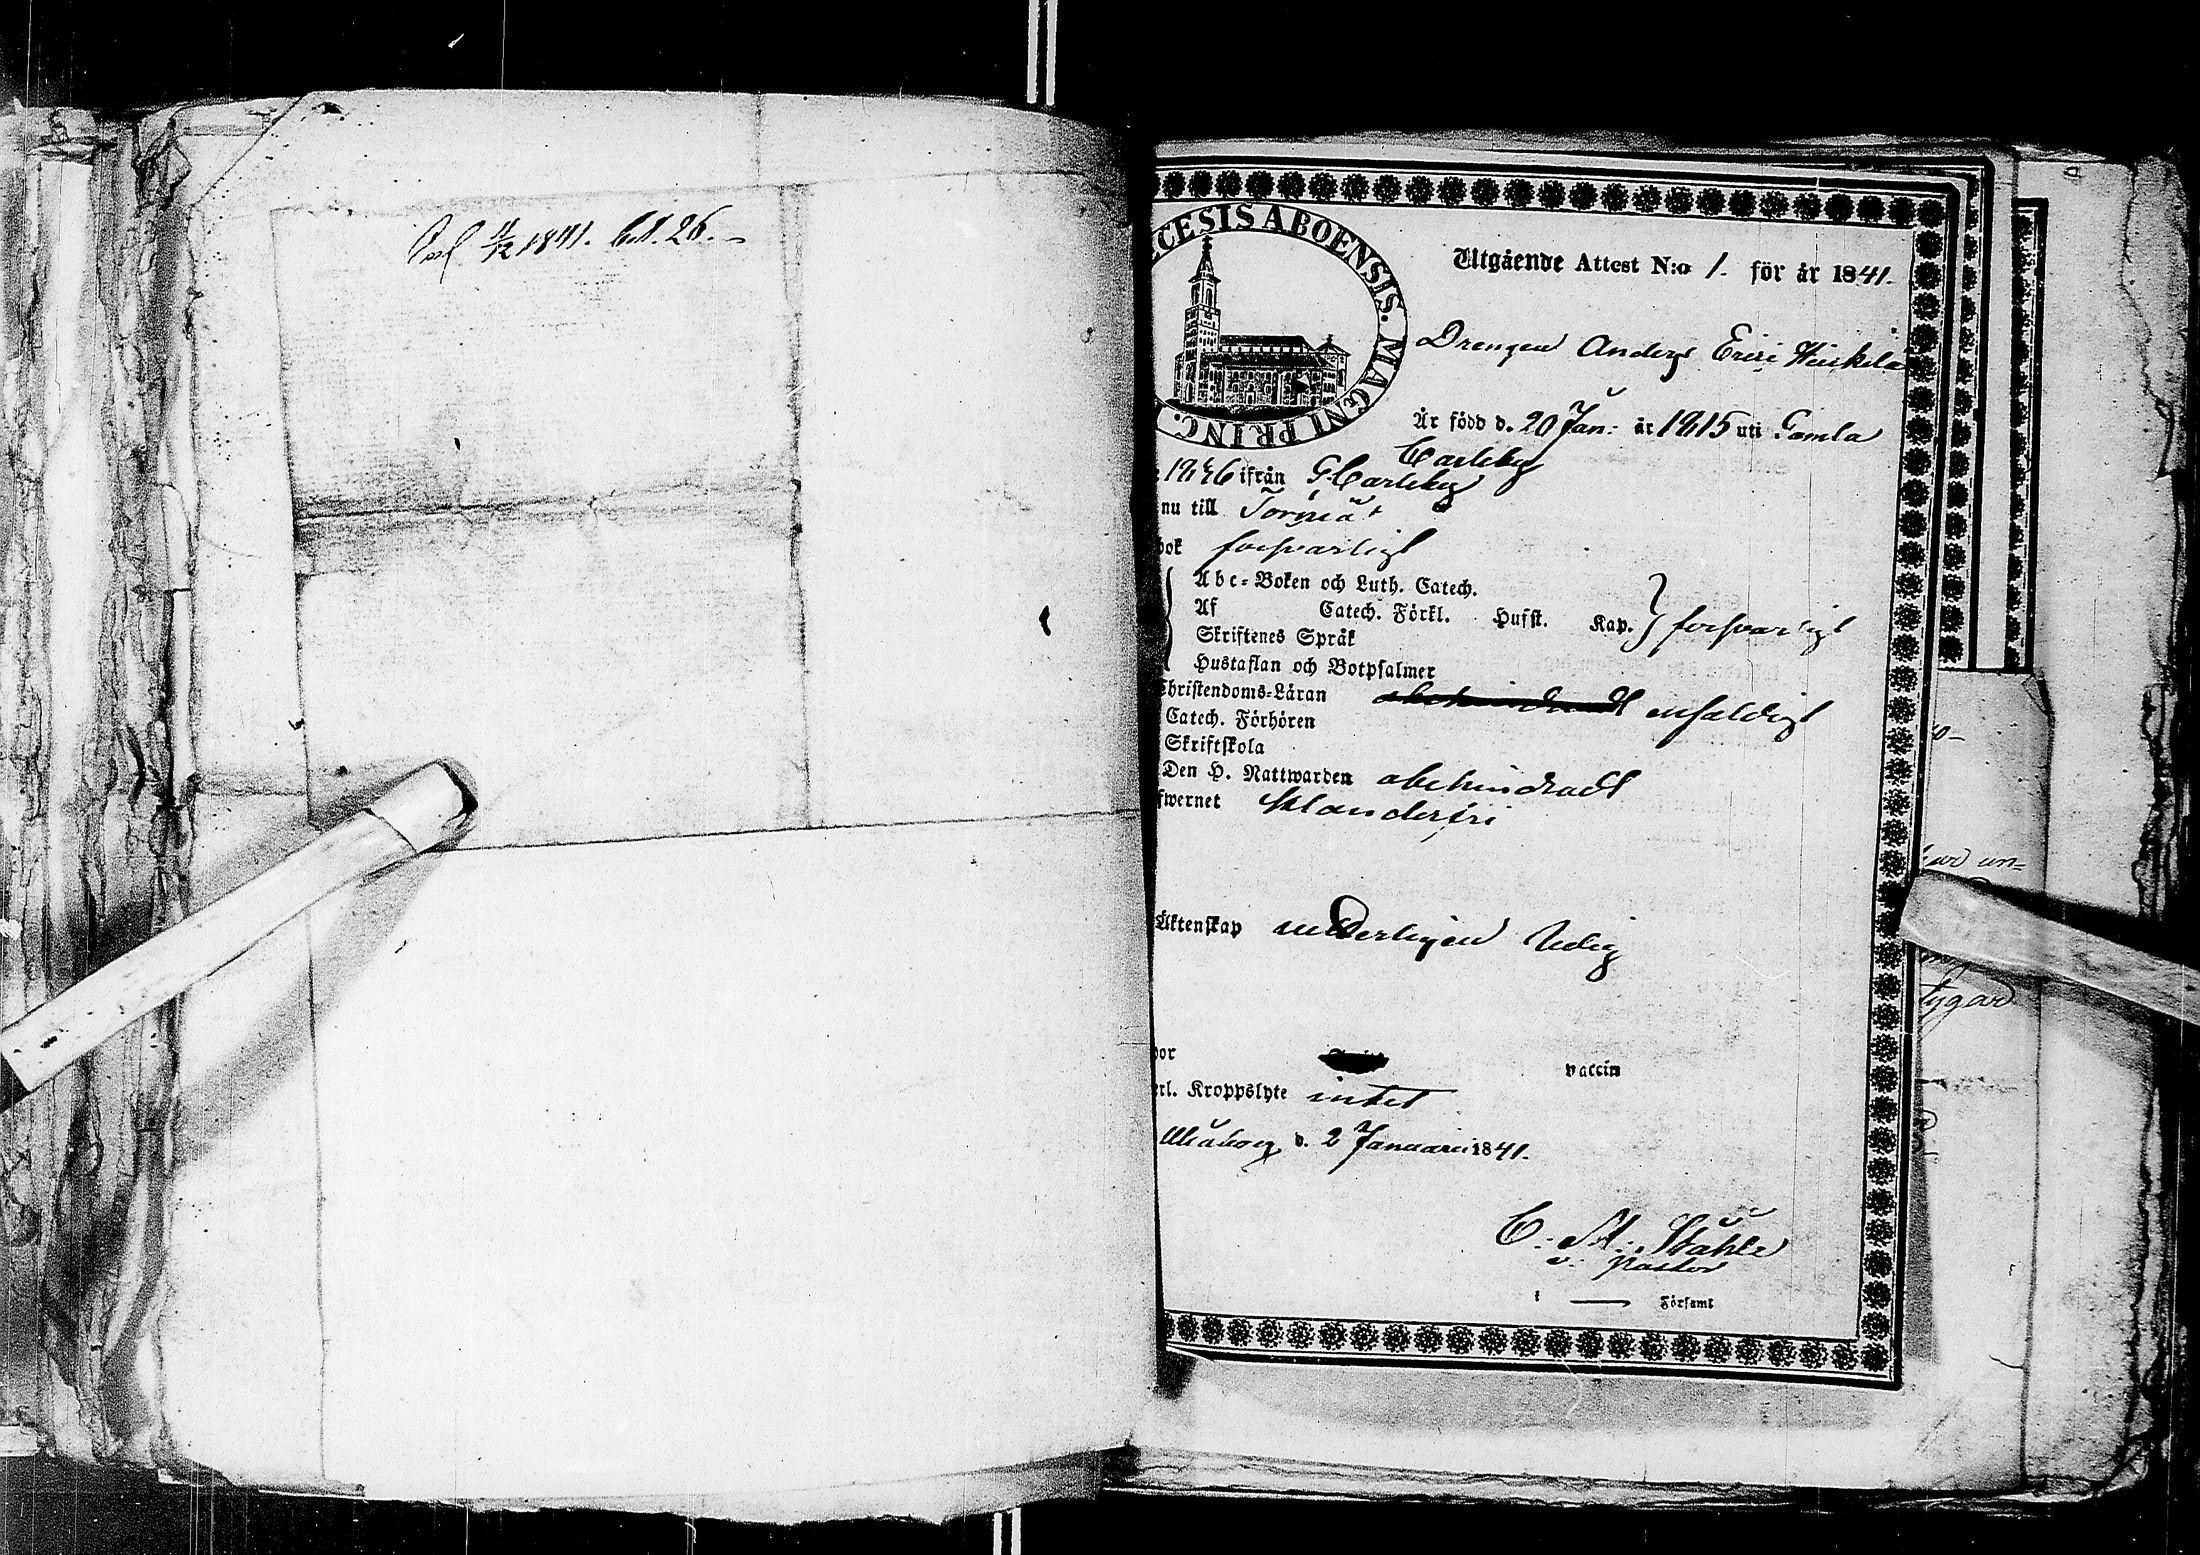 11/12 1841. bet. 26.
CESIS ABOENSIS. MAGNI PRINC.
Utgående Attest N:o 1. för år 1841.
Drengen Anders Eric
Är född d. 20 Jan: år 1815 uti Gamla
Carleby
ifrån G Carleby
nu till Torneå
bok forsvarligt
Abc-Boken och Luth. Catech.
Af Catech. Förkl. Husst. Kap. } forsvarligt
Skriftenes Språk
Hustaflan och Botpsalmer
Christendoms-Läran obehindradt enfaldigt
Catech. Förhören
Skriftskola
Den H. Nattwarden obehindradt
fwernet klanderfri
Äktenskap ledig
por vaccin
erl. Kroppslyte intet
Uleåborg d. 2 Januarii 1841.
C. M. Ståhle
v. pastor
i — Församl
un-
tygar